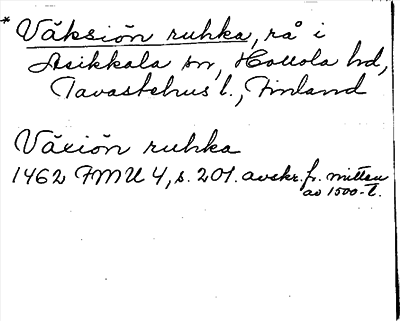 * Väksiön ruhka, rå i
Asikkala sn, Hollola hd,
Tavastehus l., Finland
Växiön ruhka
1462 FMU 4, s. 201. avskr. fr. mitten
av 1500-t.